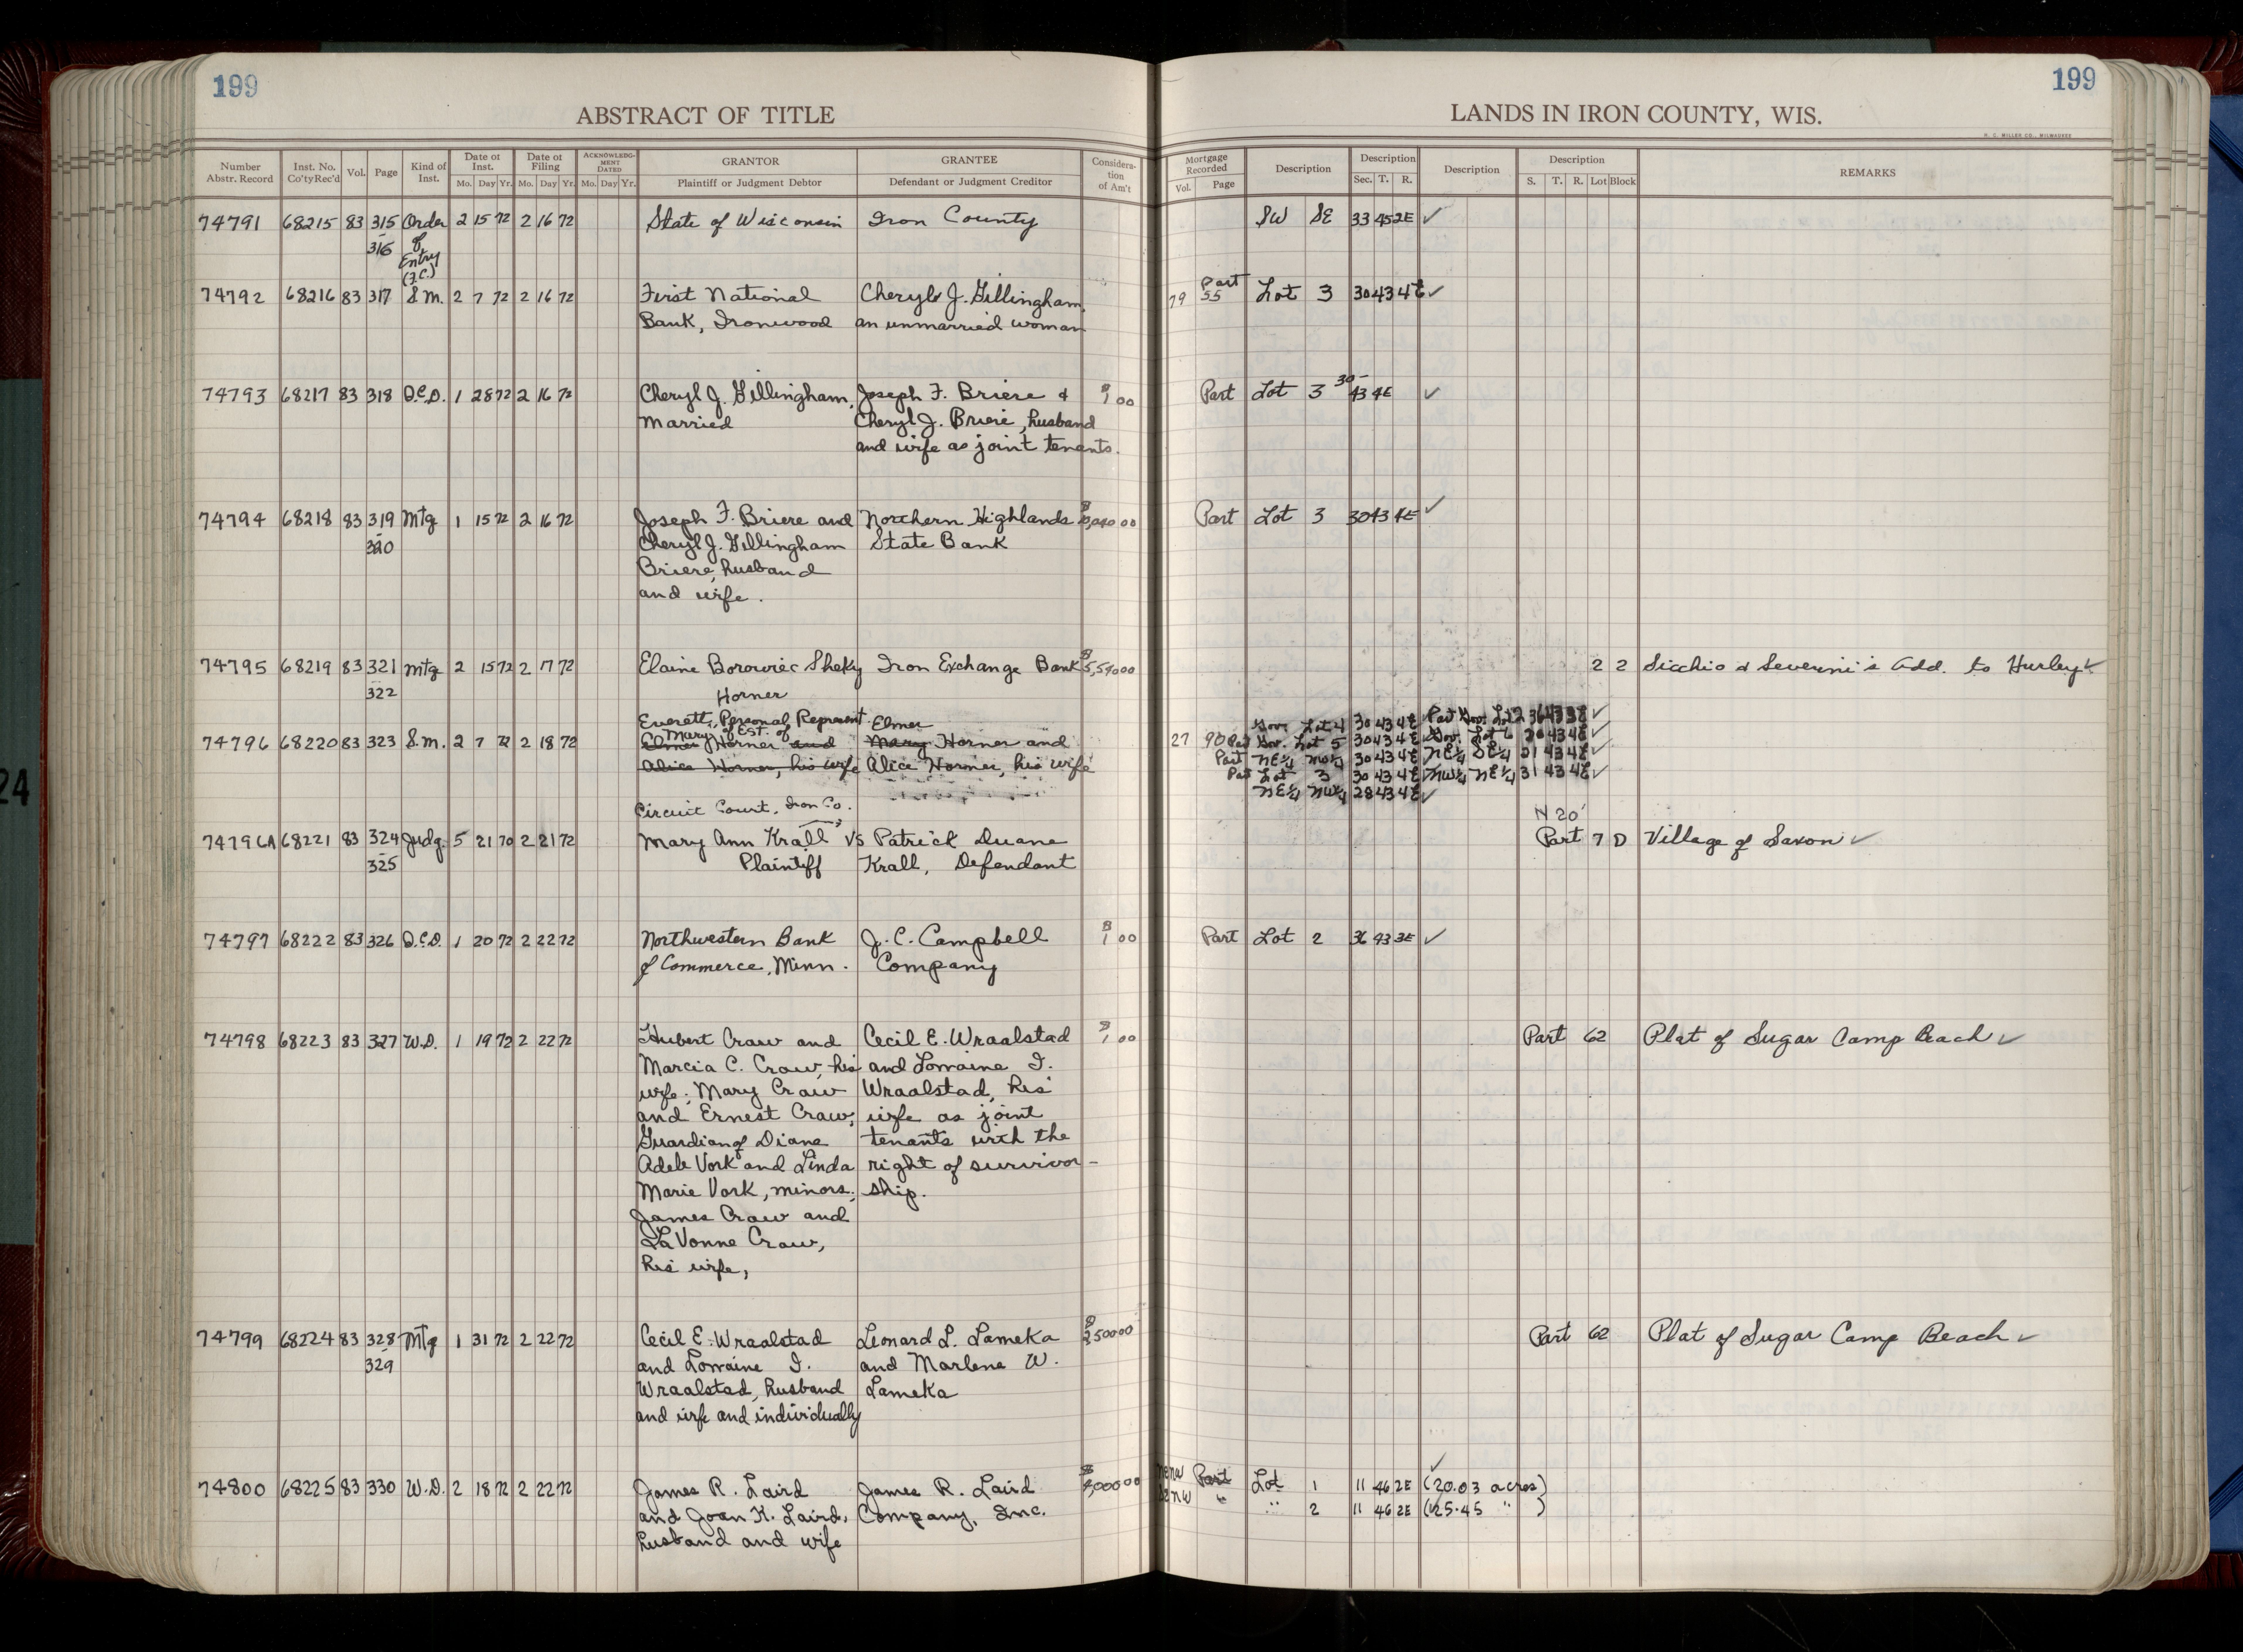 199
ABSTRACT OF TITLE
Number Abstr. Record | Inst. No. Co'ty Rec'd | Vol. | Page | Kind of Inst. | Date of Inst. Mo. Day Yr. | Date of Filing Mo. Day Yr. | ACKNOWLEDGMENT DATED Mo. Day Yr. | GRANTOR Plaintiff or Judgment Debtor | GRANTEE Defendant or Judgment Creditor | Considera-tion of Am't
74791 68215 83 315 Order 2 15 72 2 16 72 State of Wisconsin Iron County
316 of
Entry
(F.C.)
74792 68216 83 317 S.M. 2 7 72 2 16 72 First National Cheryle J. Gillingham,
Bank, Ironwood an unmarried woman
74793 68217 83 318 Q.C.D. 1 28 72 2 16 72 Cheryl J. Gillingham, Joseph F. Briere & $1 00
Married Cheryl J. Briere, husband
and wife as joint tenants.
74794 68218 83 319 Mtg 1 15 72 2 16 72 Joseph F. Briere and Northern Highlands
320 Cheryl J. Gillingham State Bank
Briere, husband
and wife.
74795 68219 83 321 Mtg 2 15 72 2 17 72 Elaine Borowiec Sheky Iron Exchange Bank
322 Horner
Everett, Personal Represent. Elmer
Mary of Est. of
74796 68220 83 323 S.M. 2 7 72 2 18 72 Elmer Horner and Mary Horner and
Alice Horner, his wife Alice Horner, his wife
Circuit Court, Iron Co.
74796A 68221 83 324 Judg. 5 21 70 2 21 72 Mary Ann Krall vs Patrick Duane
325 Plaintiff Krall, Defendant
74797 68222 83 326 Q.C.D. 1 20 72 2 22 72 Northwestern Bank J. C. Campbell $1 00
of Commerce, Minn. Company
74798 68223 83 327 W.D. 1 19 72 2 22 72 Hubert Craw and Cecil E. Wraalstad $1 00
Marcia C. Craw, his and Lorraine I.
wife; Mary Craw Wraalstad, his
and Ernest Craw, wife as joint
Guardian of Diane tenants with the
Adele Vork and Linda right of survivor-
Marie Vork, minors; ship.
James Craw and
LaVonne Craw,
his wife,
74799 68224 83 328 Mtg 1 31 72 2 22 72 Cecil E. Wraalstad Leonard L. Lameka $2500 00
329 and Lorraine I. and Marlene W.
Wraalstad, husband Lameka
and wife and individually
74800 68225 83 330 W.D. 2 18 72 2 22 72 James R. Laird James R. Laird
and Joan K. Laird, Company, Inc.
husband and wife
199
LANDS IN IRON COUNTY, WIS.
H. C. MILLER CO., MILWAUKEE
Mortgage Recorded Vol. Page | Description | Description Sec. T. R. | Description | Description S. T. R. Lot Block | REMARKS
SW SE 33 45 2E ✓
Part
79 55 Lot 3 30 43 4E ✓
Part Lot 3 30- 43 4E ✓
Part Lot 3 30 43 4E ✓
2 2 Sicchio & Severini's Add. to Hurley ✓
Gov. Lot 4 30 43 4E Part Gov. Lot 2 36 43 3E ✓
27 90 Part Gov. Lot 5 30 43 4E Gov. Lot 6 43 4E ✓
Part NE¼ NW¼ 30 43 4E NE¼ SE¼ 43 4E ✓
Part Lot 3 30 43 4E NW¼ NE¼ 31 43 4E ✓
NE¼ NW¼ 28 43 4E ✓
N 20'
Part 7 D Village of Saxon ✓
Part Lot 2 36 43 3E ✓
Part 62 Plat of Sugar Camp Beach ✓
Part 62 Plat of Sugar Camp Beach ✓
NENW Part Lot 1 11 46 2E (20.03 acres) ✓
SENW " " 2 11 46 2E (25.45 " )
24